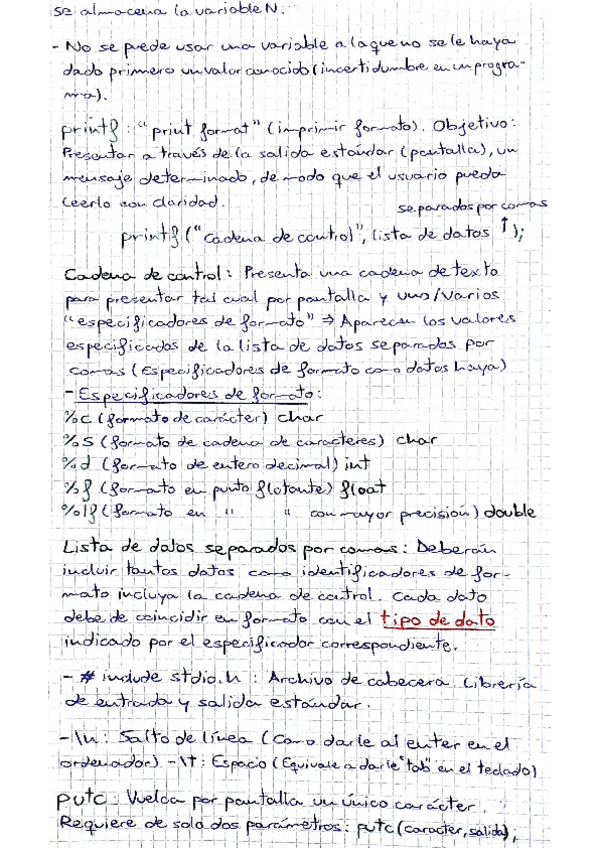 se almacena la variable N.
- No se puede usar una variable a la que no se le haya
dado primero un valor conocido (incertidumbre en un progra-
ma).
printf: "print format" (imprimir formato). Objetivo:
Presentar a través de la salida estándar (pantalla), un
mensaje determinado, de modo que el usuario pueda
leerlo con claridad.
separados por comas
printf ("cadena de control", lista de datos ↑);
Cadena de control: Presenta una cadena de texto
para presentar tal cual por pantalla y uno/varios
"especificadores de formato" ⇒ Aparecen los valores
especificados de la lista de datos separados por
comas (Especificadores de formato como datos haya)
- Especificadores de formato:
%c (formato de carácter) char
%s (formato de cadena de caracteres) char
%d (formato de entero decimal) int
%f (formato en punto flotante) float
%lf (formato en " " con mayor precisión) double
Lista de datos separados por comas: Deberán
incluir tantos datos como identificadores de for-
mato incluya la cadena de control. Cada dato
debe de coincidir en formato con el tipo de dato
indicado por el especificador correspondiente.
- # include stdio.h : Archivo de cabecera. Librería
de entrada y salida estándar.
- \n: Salto de línea (Como darle al enter en el
ordenador) - \t: Espacio (Equivale a darle "tab" en el teclado)
putc: Vuelca por pantalla un único carácter.
Requiere de solo dos parámetros: putc (caracter, salida),